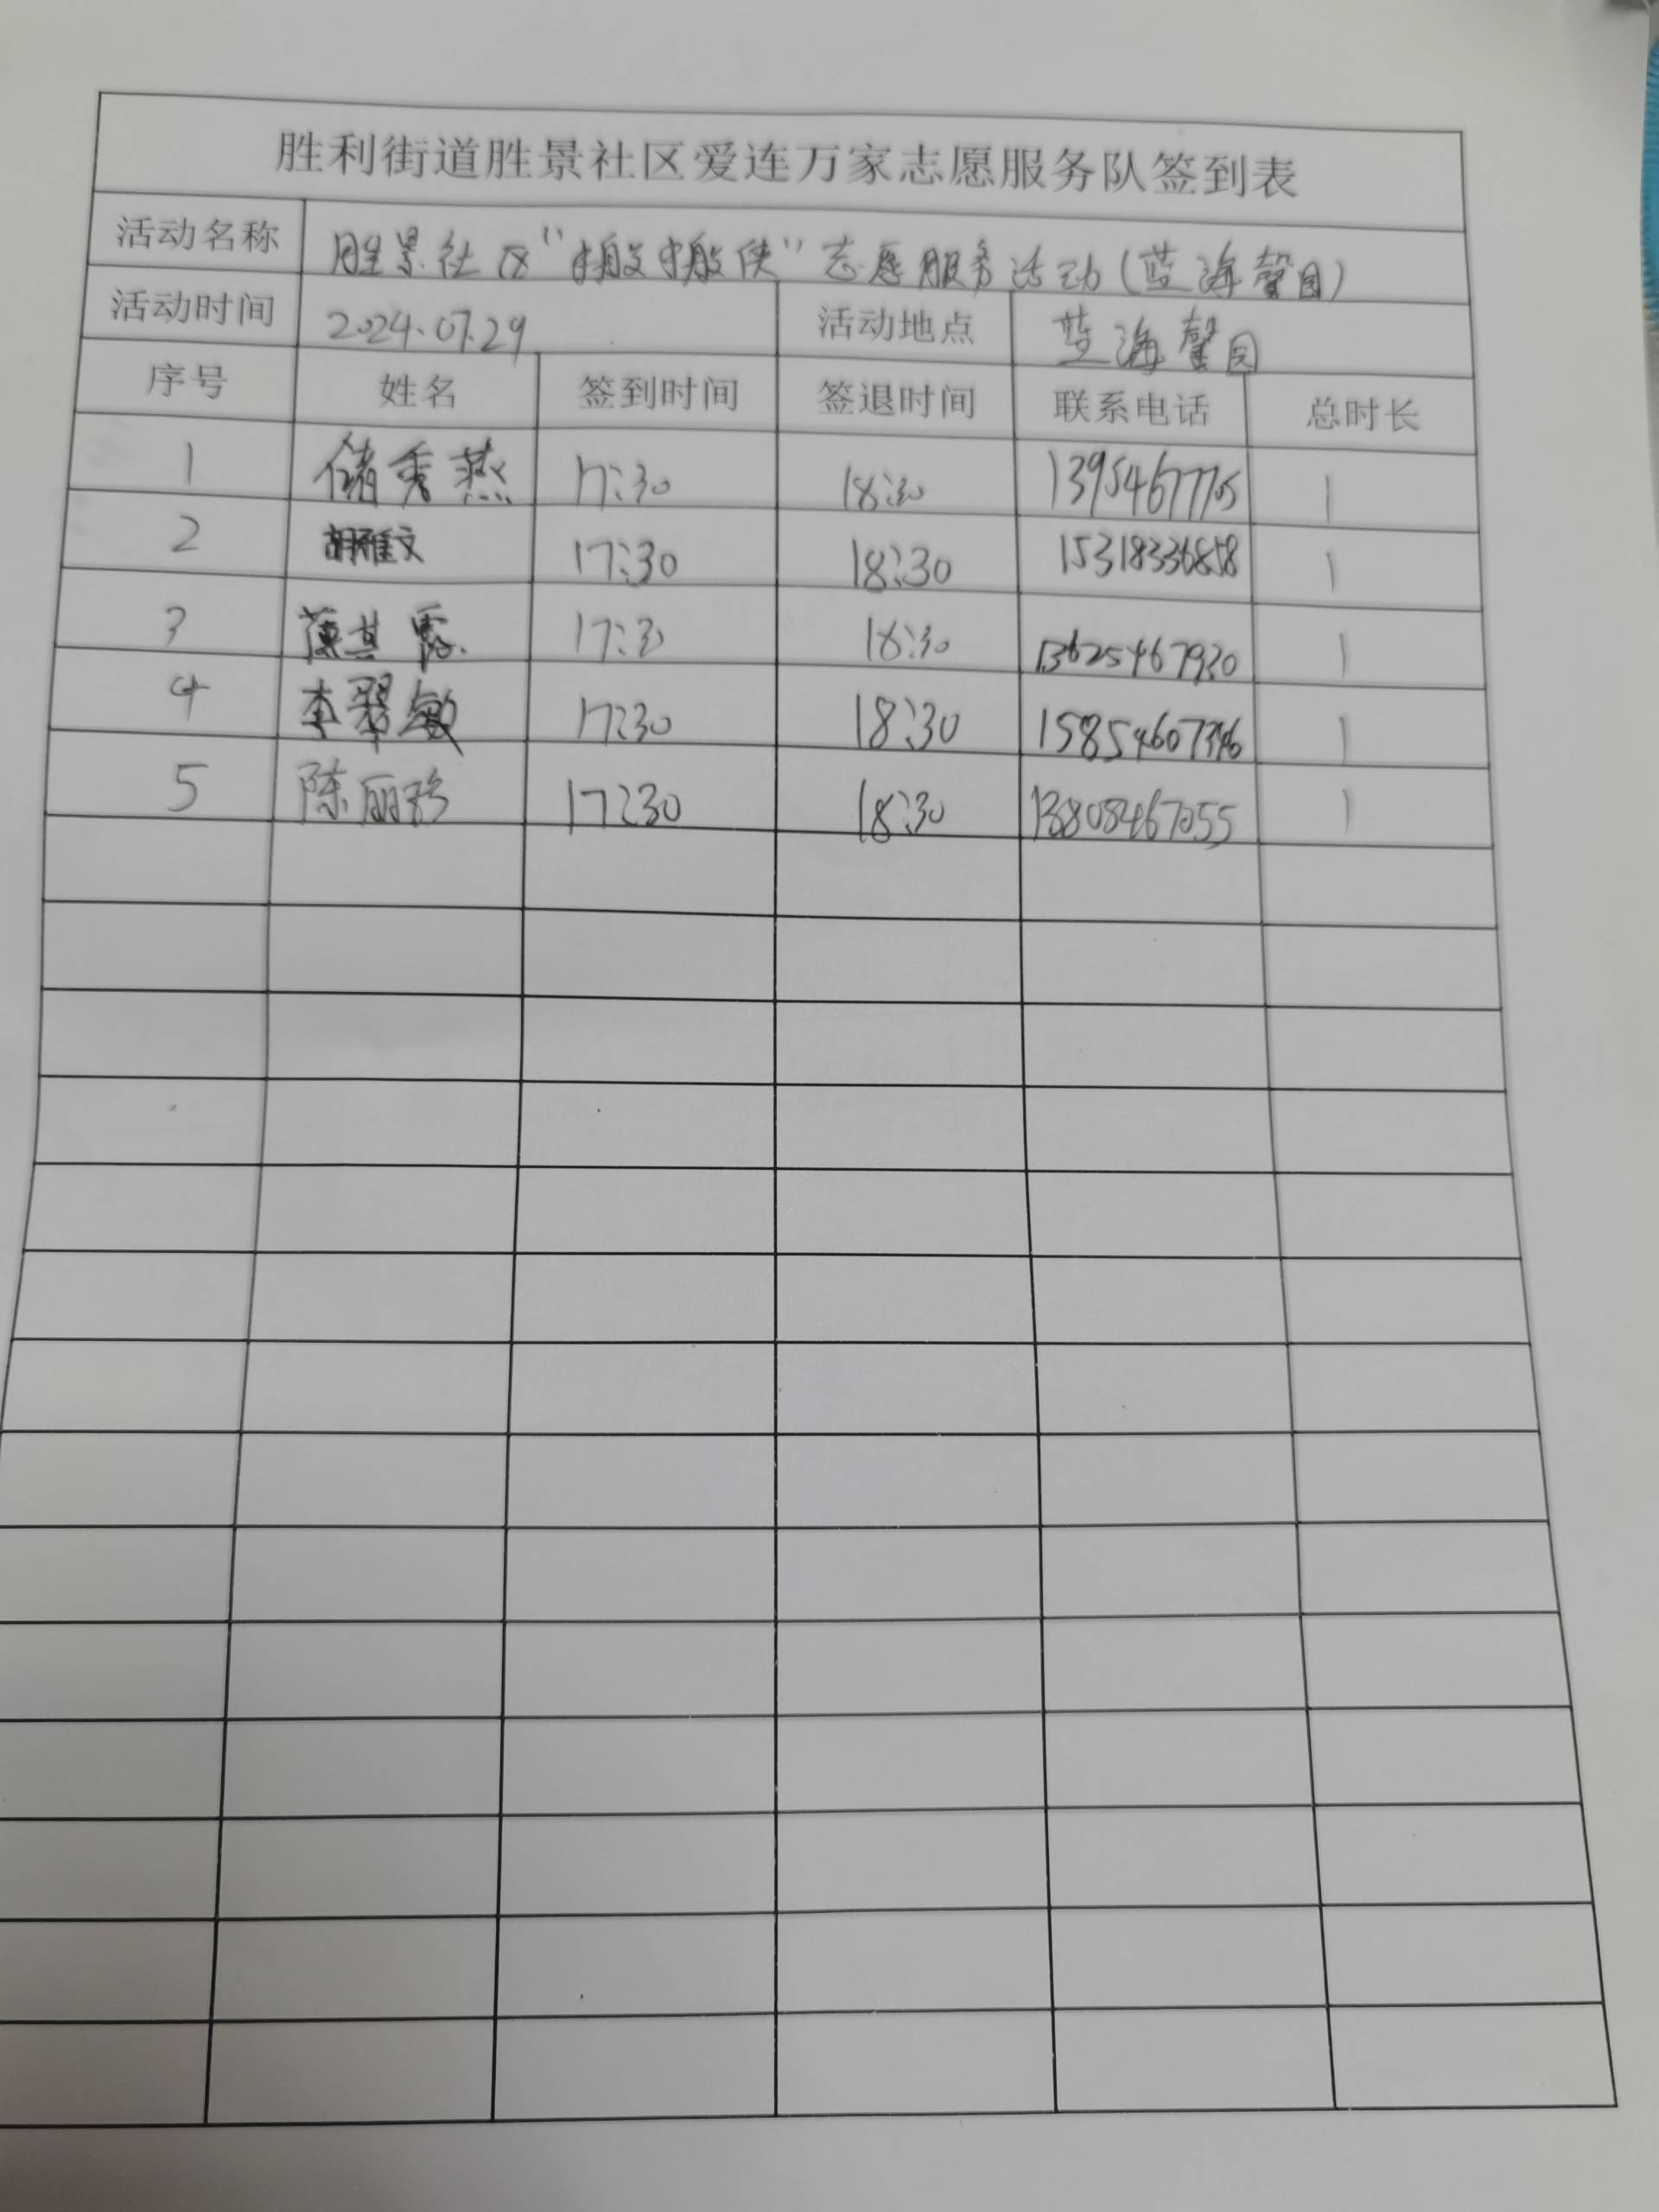 胜利街道胜景社区爱连万家志愿服务队签到表
活动名称 胜景社区“搬搬侠”志愿服务活动(蓝海馨园)
活动时间 2024.07.29 活动地点 蓝海馨园
序号 姓名 签到时间 签退时间 联系电话 总时长
1 储秀燕 17:30 18:30 13954677705 1
2 胡雅文 17:30 18:30 15318336858 1
3 薄其霞 17:30 18:30 13625467920 1
4 李翠敏 17:30 18:30 15854607396 1
5 陈丽珍 17:30 18:30 13808467055 1